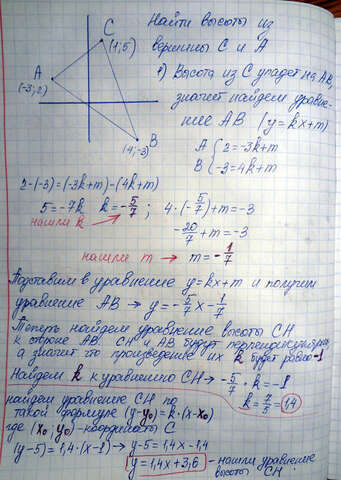 Найти высоты из
С
(1;5)
вершины С и А
1) Высота из С упадет на АВ,
А
(-3;2)
значит найдем уравне-
ние АВ (y = kx+m)
В
(4;-3)
А { 2 = -3k+m
В { -3 = 4k+m
2-(-3) = (-3k+m) - (4k+m)
5 = -7k k = -5/7 ; 4·(-5/7)+m = -3
нашли k
-20/7 + m = -3
нашли m → m = -1/7
Подставим в уравнение y=kx+m и получим
уравнение АВ → y = -5/7 x - 1/7
Теперь найдем уравнение высоты СН
к стороне АВ. СН и АВ будут перпендикулярны,
а значит что произведение их k будет равно -1
Найдем k к уравнению СН → -5/7 · k = -1
k = 7/5 = 1,4
найдем уравнение СН по
такой формуле (y-y₀) = k·(x-x₀)
где (x₀; y₀) - координаты С
(y-5) = 1,4·(x-1) → y-5 = 1,4x-1,4
y = 1,4x+3,6 - нашли уравнение
высоты СН